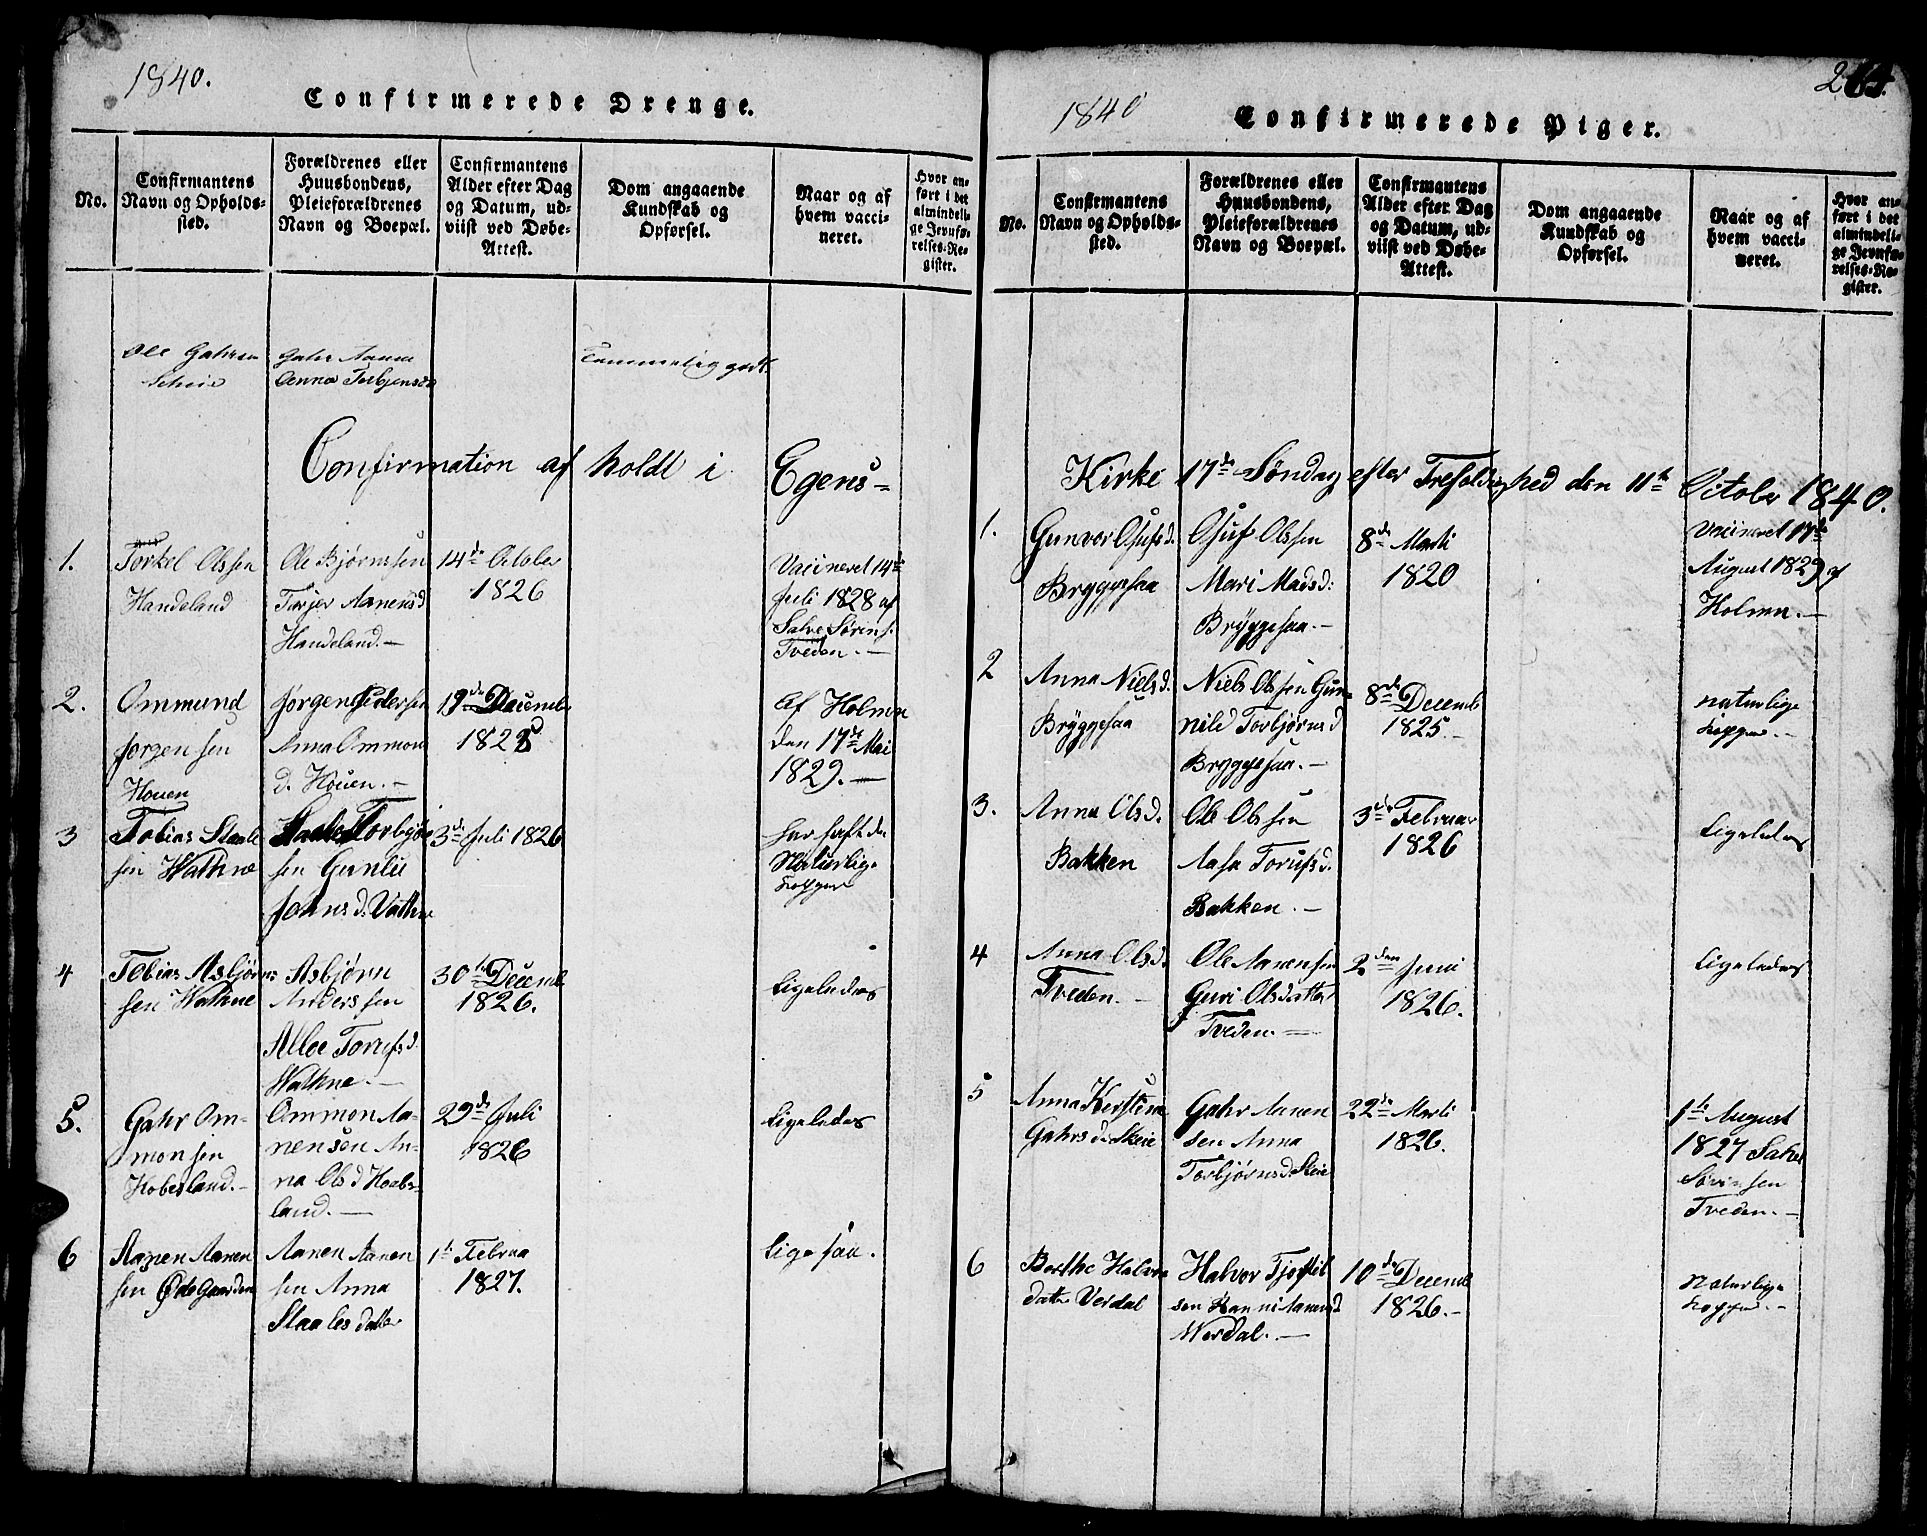 1840.
Confirmerede Drenge.
No.
Confirmantens
Navn og Opholds-
sted.
Forældrenes eller
Huusbondens,
Pleieforældrenes
Navn og Boepæl.
Confirmantens
Alder efter Dag
og Datum, ud-
viist ved Døbe-
Attest.
Dom angaaende
Kundskab og
Opførsel.
Naar og af
hvem vacci-
neret.
Hvor an-
ført i det
almindeli-
ge Jevnfø-
relses-Re-
gister.
Ole Gahrsen
Scheie
Gahr Aanen
Anna Torbjensd
Temmelig godt
Confirmation af holdt i Egens=
1.
Torkel Olssen
Handeland
Ole Bjørnssen
Torjer Aanensd
Handeland.—
14de October
1826
Vaccineret 14de
Juli 1828 af
Salve Sørens.
Tveden.—
2.
Ommund
Jørgensen
Houen
Jørgen Pedersen
Anna Ommon
d. Houen.—
19de Decemb.
1825
af Holmen
den 17de Mai
1829.—
3
Tobias Staale
sen Wathne
Staale Torbjør
sen Gunlie
Johnsd. Vathne
3de Juli 1826
har haft de
Naturlige
kopper
4
Tobias Asbjørns
sen Wathne
Asbjørn
Anderssen
Alloe Torufsd.
Wathne.—
30te Decemb
1826.
Ligeledes
5.
Gahr Om-
monsen
Kobesland.-
Ommon Aa-
nensen An-
na Olsd Koabs-
land.—
29de Juli
1826
Ligeledes
6
Aanen Aanen
sen Ødegaarden
Aanen Aanen
sen Anna
Staalesdatter
1te Februa
1827.
Ligesaa.
1840
264.
Confirmerede Piger.
No.
Confirmantens
Navn og Opholds-
sted.
Forældrenes eller
Huusbondens,
Pleieforældrenes
Navn og Boepæl.
Confirmantens
Alder efter Dag
og Datum, ud-
viist ved Døbe-
Attest.
Dom angaaende
Kundskab og
Opførsel.
Naar og af
hvem vacci-
neret.
Hvor an-
ført i det
almindeli-
ge Jevnfø-
relses-Re-
gister.
Kirke 17de Søndag efter Trefoldighed den 11te October 1840.
1.
Gunvor Osufsd.
Bryggesaa
Osuf Olssen
Mari Madsd:
Bryggesaa.—
8de Marti
1820
Vaccineret 17de
August 1829 af
Holmen.—
2
Anna Nielsd.
Bryggesaa
Niels Olssen Gun=
nild Torbjørnsd
Bryggesaa.—
8de Decemb
1825.—
naturlige
kopper.—
3.
Anna Olsd.
Bakken
Ole Olssen
Aasa Torufsd.
Bakken.—
3de Februar
1826
Ligeledes
4
Anna Olsd.
Tveden.—
Ole Aanensen
Guri Olsdatter
Tveden.—
2den Juni
1826.
Ligeledes
5
Anna Kerstine
Gahrsd. Skeie
Gahr Aanen
sen Anna
Torbjørnsd Skeie
22de Marti
1826.
1te August
1827 Salve
Sørensen
Tveden.—
6
Berthe Halvo
datte Verdal
Halvor Tjøstil
sen Ranni Aanensd
Werdal.—
10de Decemb
1826.—
Naturlige
kopper.—